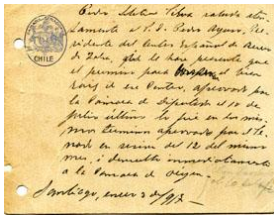 Pedro Letelier Silva saluda aten-
tamente al S. D. Pedro Ayuso, Pre-
sidente del Centro Español de
i le hace presente que
el permiso para el bien
raiz de ese Centro, aprobado por
la Cámara de Diputados el 10 de
julio último lo fué en los mis-
mos términos aprobado por el Se-
nado en sesion del 12 del mismo
mes, i devuelto inmediatamente
a la Cámara de origen.
Santiago, enero 3 de 1917
CHILE